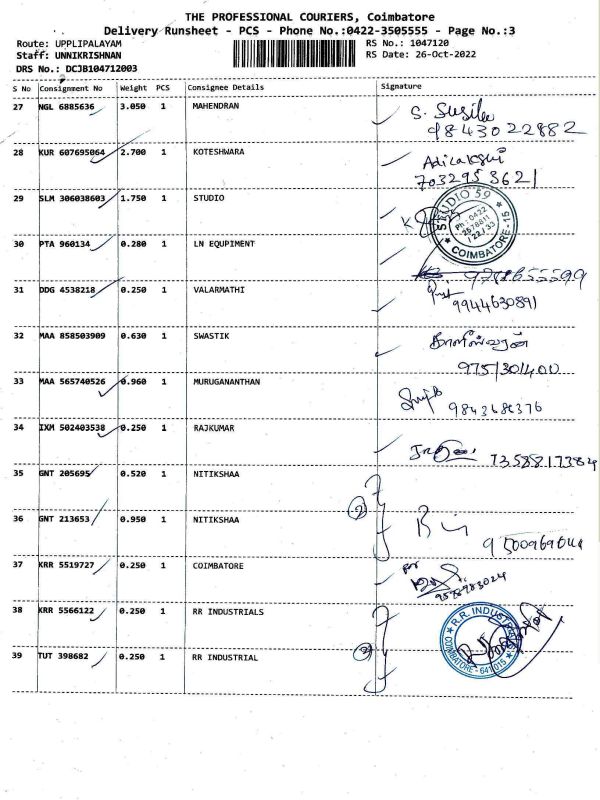 THE PROFESSIONAL COURIERS, Coimbatore
Delivery Runsheet - PCS - Phone No.:0422-3505555 - Page No.:3
Route: UPPLIPALAYAM
RS No.: 1047120
Staff: UNNIKRISHNAN
RS Date: 26-Oct-2022
DRS No.: DCJB104712003
S No Consignment No Weight PCS Consignee Details Signature
27 NGL 6885636 3.050 1 MAHENDRAN S. Susila
9843022882
28 KUR 607695064 2.700 1 KOTESHWARA
7032953621
29 SLM 306038603 1.750 1 STUDIO
STUDIO 59
Ph : 0422
COIMBATORE-15
30 PTA 960134 0.280 1 LN EQUPIMENT
31 DDG 4538218 0.250 1 VALARMATHI
9944630891
32 MAA 858503909 0.630 1 SWASTIK
975/301400
33 MAA 565740526 0.960 1 MURUGANANTHAN
34 IXM 502403538 0.250 1 RAJKUMAR
35 GNT 205695 0.520 1 NITIKSHAA
2
36 GNT 213653 0.950 1 NITIKSHAA
37 KRR 5519727 0.250 1 COIMBATORE
9578983024
38 KRR 5566122 0.250 1 RR INDUSTRIALS
R.R. INDUSTR
39 TUT 398682 0.250 1 RR INDUSTRIAL
2
COIMBATORE - 641 015